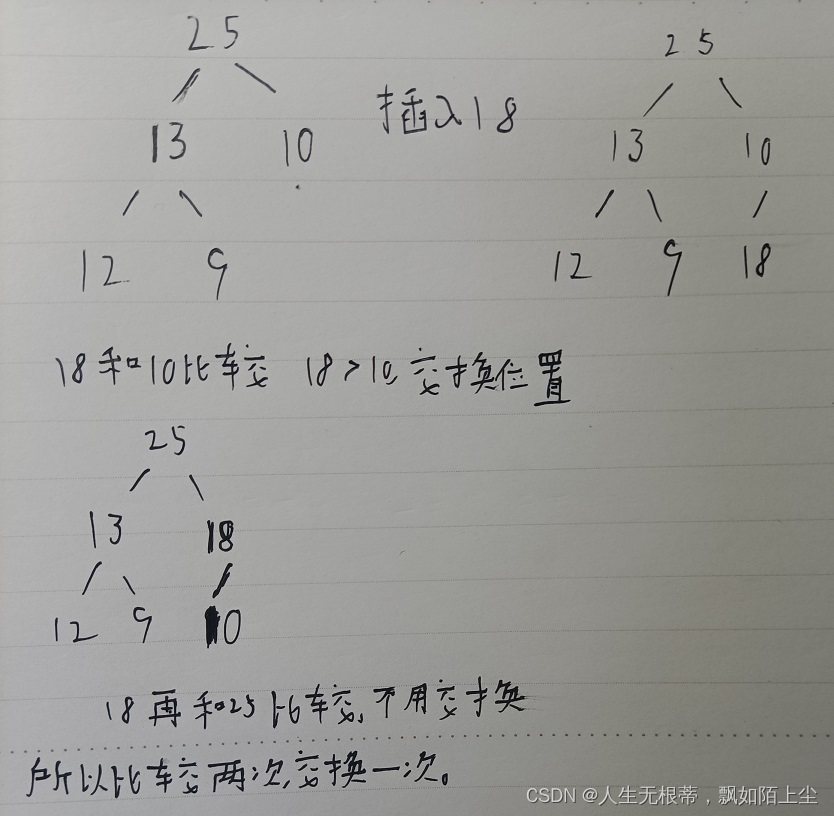 25 25
插入18
13 10 13 10
12 9 12 9 18
18和10比较 18>10,交换位置
25
13 18
12 9 10
18再和25比较,不用交换
所以比较两次,交换一次。
CSDN @人生无根蒂，飘如陌上尘